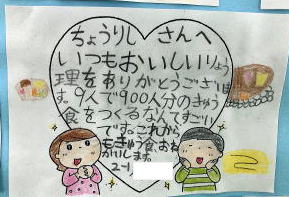 ちょうりしさんへ
いつもおいしいりょう
理をありがとうござい
ます。9人で900人分のきゅう
食をつくるなんてすごい
です。これから
もきゅう食、おね
がいします。
2-1